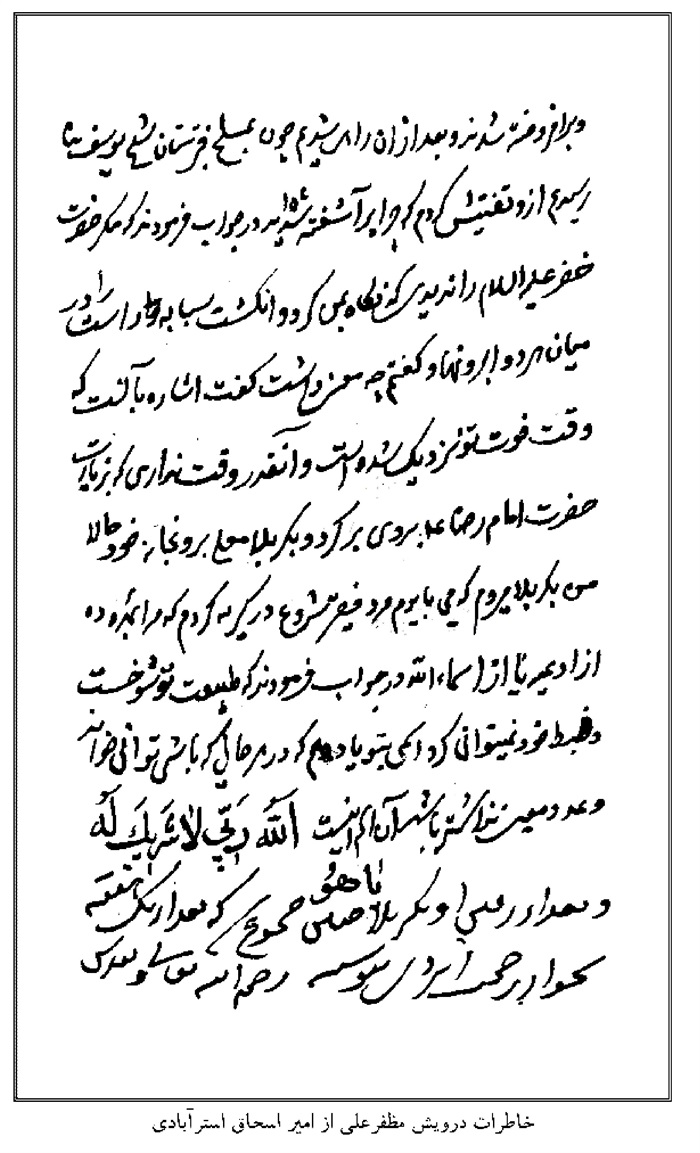 وبرافروخته شدند و بعد از ان راهی شدیم چون بمسلح قبرستان شیخ یوسف بنا
رسیدم ازو تفتیش کردم که چرا برآشفته شده‌اید در جواب فرمودند که مکر حضرت
خضر علیه السلام را ندیدی که نکاه بمن کرد و انکشت سبابه را در
میان هر دو ابرو نهاد و کفتم چه معنی داشت کفت اشاره بآنست که
وقت فوت تو نزدیک شده است و آنقدر وقت نداری که بزیارت
حضرت امام رضا ع بروی برکرد و بکربلا معلی برو نجانه خود حالا
من بکربلا میروم که می بایدم مرد فقیر شروع در کریه کردم که مرا
از ادعیه یا از اسماء الله در جواب فرمودند که طبیعت تو شوخست
و ضبط خود نمیتوانی کرد اسمی بتو یاد دهم که در هر حالی که باشی توانی خواند
و عدد معین نداشته باشد آن اسم اینست الله ربی لا شریک له
یا هو
و بعد از و بکربلا که بعد از یک هفته
بجوار رحمت ایزدی پیوسته رحمه الله تعالی و
خاطرات درویش مظفرعلی از امیر اسحاق استرآبادی